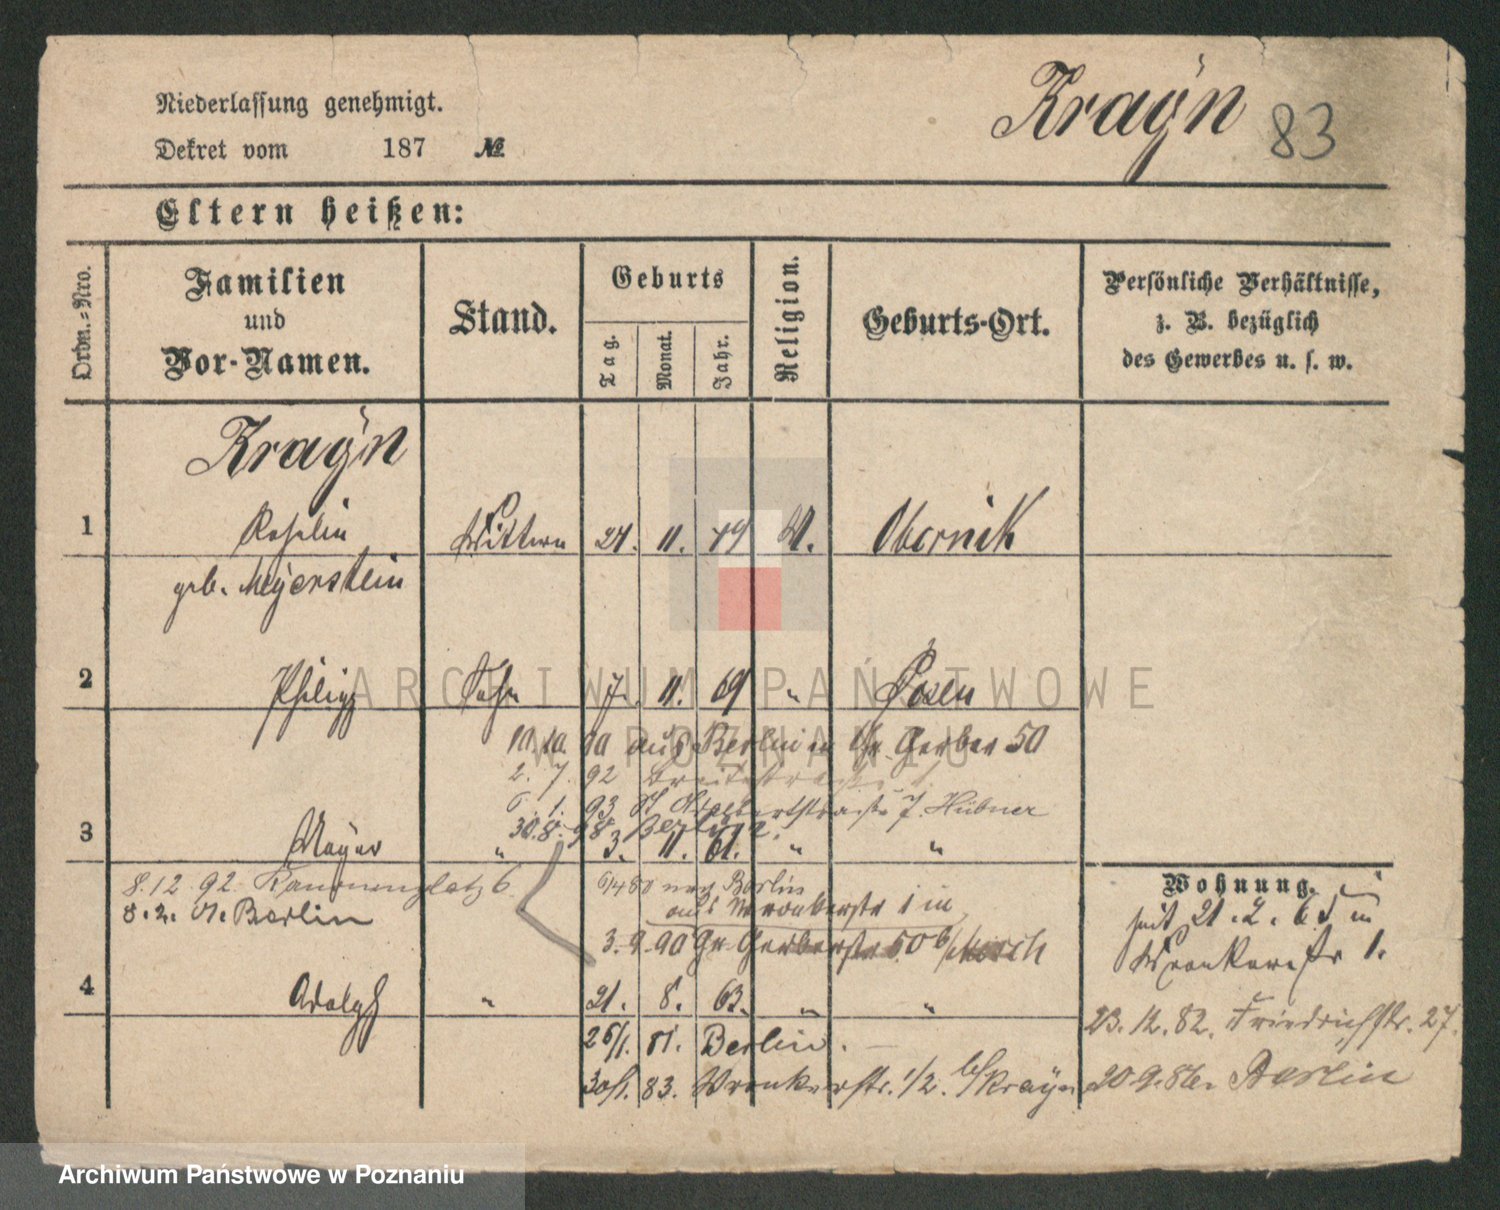 Niederlassung genehmigt.
Dekret vom 187 №
Kraÿn 83
Eltern heißen:
Ordn.=Nro.
Familien
und
Vor-Namen.
Stand.
Geburts
Tag.
Monat.
Jahr.
Religion.
Geburts-Ort.
Persönliche Verhältnisse,
z. B. bezüglich
des Gewerbes u. s. w.
Kraÿn
1 Rosalin Wittwe 11. Obernik
geb. Meÿerstein
2 Philipp Sohn 7. 11. 69 " Posen
10.10.90 aus Berlin Gr. Gerber 50
2. 7. 92 Breitestrasse
6. 1. 93 7. Hübner
30.8.98 Berlin
3 Mayer " 3. 11. 61. " "
8.12.92. Kanonenplatz 6
Berlin
Berlin
aus Wronkerstr 1 in
3.9.90 Gr Gerberstr 50
4 Adolph " 21. 8. 63. " "
26/1. 81. Berlin.
30/1. 83. Wronkerstr. 1/2. b/ Kraÿn
Wohnung.
seit 21.2.65 in
Wronkerstr 1.
23.12.82. Friedrichstr. 27.
20.9.86 Berlin
ARCHIWUM PAŃSTWOWE
W POZNANIU
Archiwum Państwowe w Poznaniu